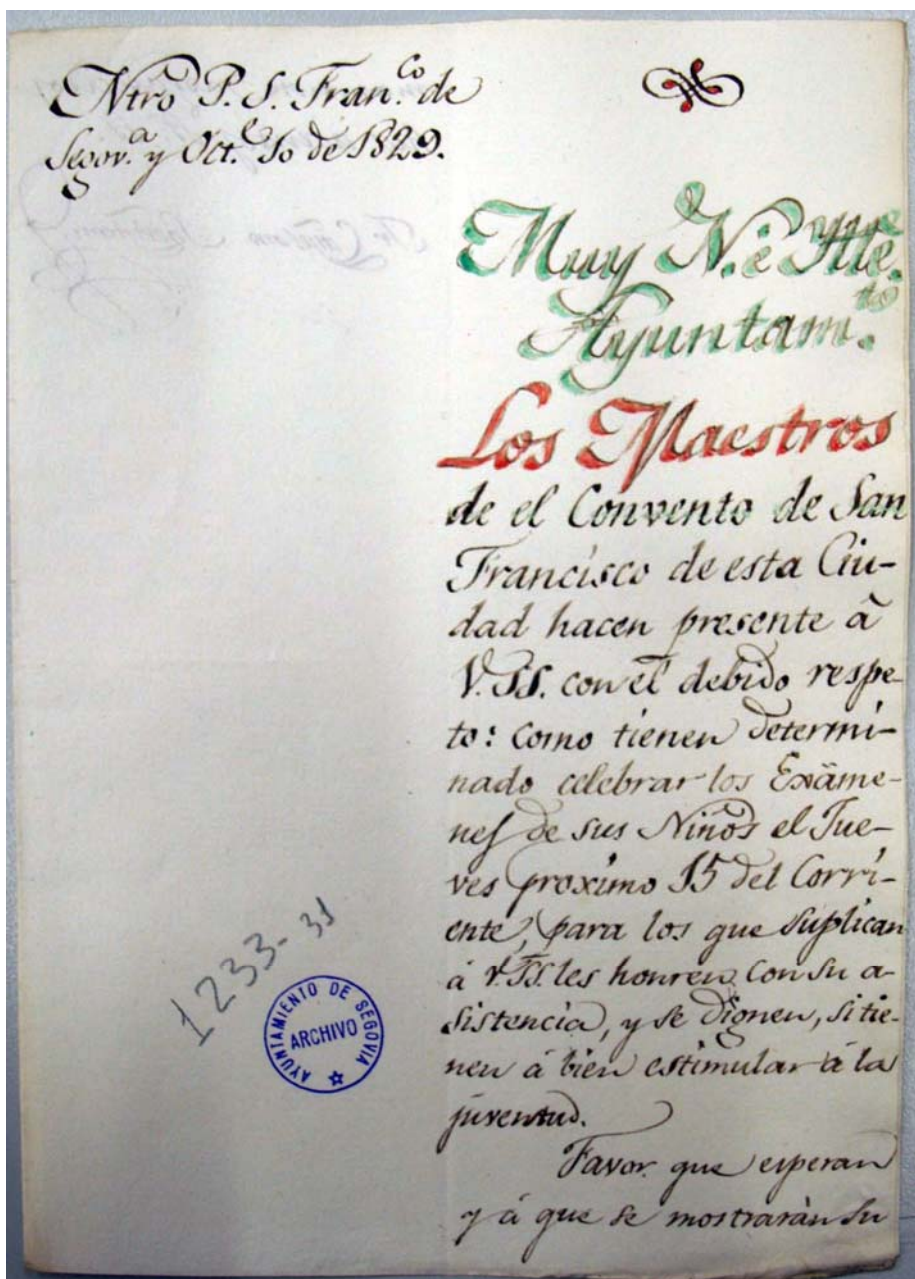 Ntro P. S. Fran.co de
Segov.a y Oct.e 10 de 1829.
Muy N. e Ylle.
Ayuntam.to
Los Maestros
de el Convento de San
Francisco de esta Ciu-
dad hacen presente á
V.SS. con el debido respe-
to: como tienen determi-
nado celebrar los Exâme-
nes de sus Niños el Jue-
ves proximo 15 del Corri-
ente, para los que suplican
á V.SS. les honren con su a-
sistencia, y se dignen, si tie-
nen á bien estimular á la
juventud.
Favor que esperan
y á que se mostrarán su
1233-31
AYUNTAMIENTO DE SEGOVIA
ARCHIVO